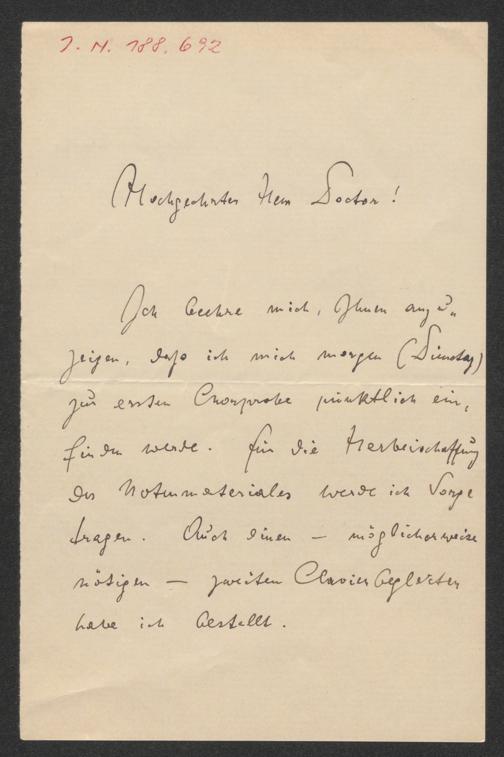 J. N. 188.692
Hochgeehrter Herr Doctor!
Ich beehre mich, Ihnen anzu-
zeigen, dass ich mich morgen (Dienstag)
zur ersten Chorprobe pünktlich ein-
finden werde. Für die Herbeischaffung
des Notenmateriales werde ich Sorge
tragen. Auch einen — möglicherweise
nötigen — zweiten Clavierbegleiter
habe ich bestellt.